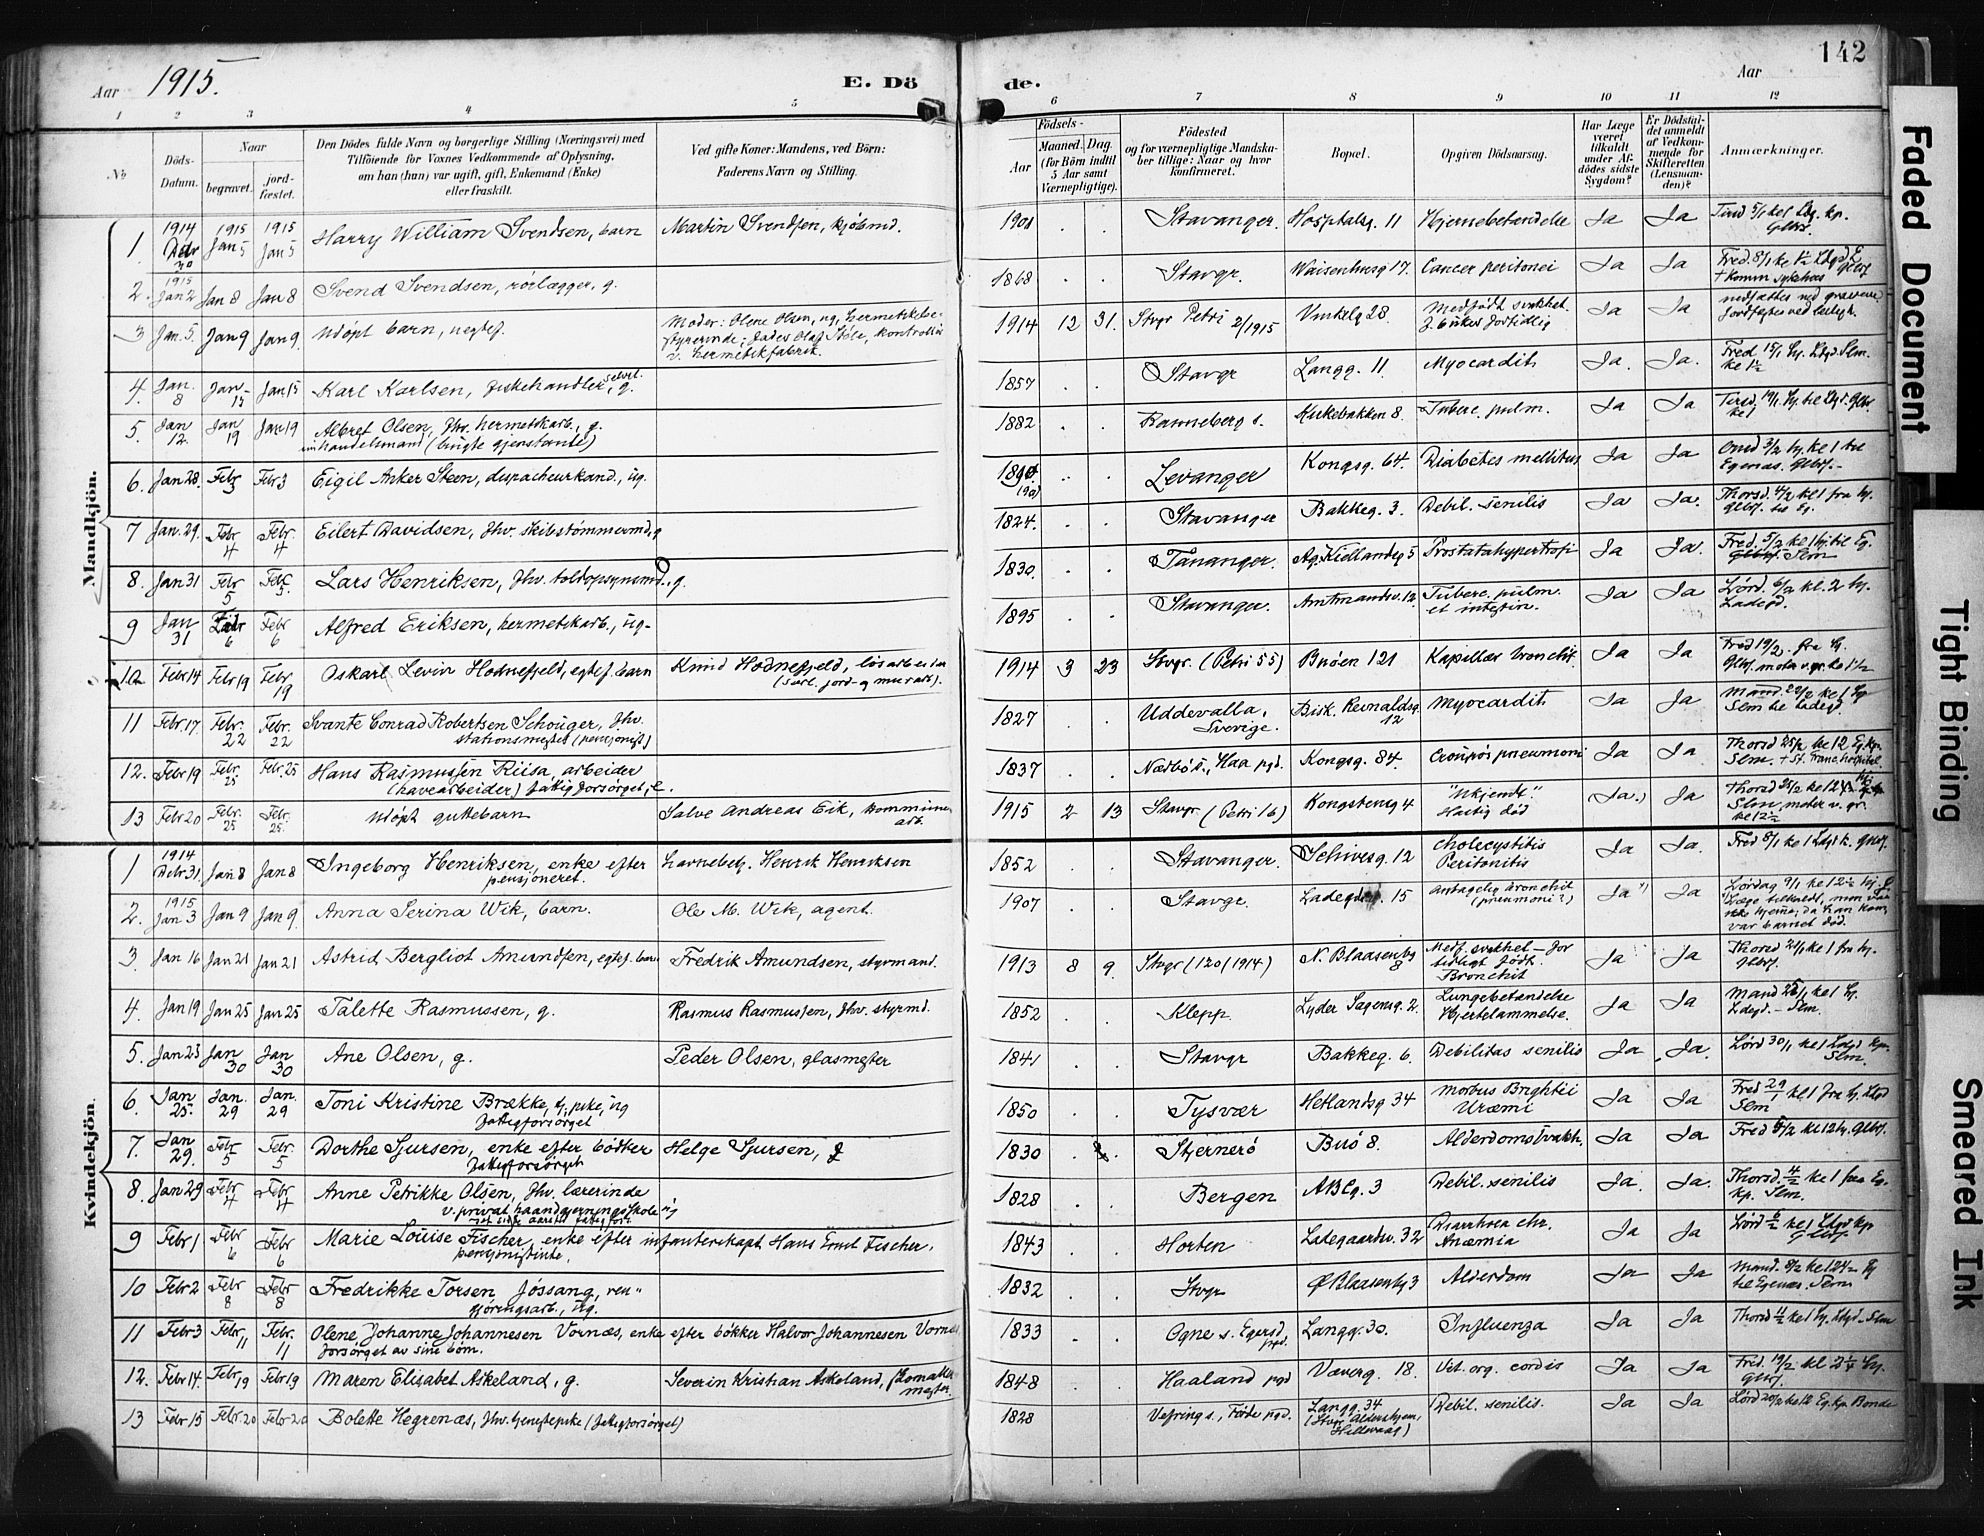 142
Aar 1915.
E. Dö de.
Aar
1 2 3 4 5 6 7 8 9 10 11 12
№
Döds-Datum.
Naar
begravet. jord-fæstet.
Den Dödes fulde Navn og borgerlige Stilling (Næringsvei) med
Tilföiende for Voxnes Vedkommende af Oplysning,
om han (hun) var ugift, gift, Enkemand (Enke)
eller fraskilt.
Ved gifte Koner: Mandens, ved Börn:
Faderens Navn og Stilling.
Födsels-
Aar Maaned. Dag.
(for Börn indtil
5 Aar samt
Værnepligtige).
Födested
og for værnepligtige Mandska-
ber tillige: Naar og hvor
konfirmeret.
Bopæl.
Opgiven Dödsaarsag.
Har Læge
været
tilkaldt
under Af-
dödes sidste
Sygdom?
Er Dödsfal-
det anmeldt
af Vedkom-
mende for
Skifteretten
(Lensman-
den)?
Anmærkninger.
Mandkjön.
1 1914 Debr 30 1915 Jan 5 1915 Jan 5 Harry William Svendsen, barn Martin Svendsen, kjøbmd. 1901 . . Stavanger. Hospitalsg. 11 Hjernebetændelse Ja Ja Tirsd 5/1 kl 1 Ldg. kp.
2. 1915 Jan 2 Jan 8 Jan 8 Svend Svendsen, rørlægger, g. 1868 . . Stavgr. Waisenhusg 17. Cancer peritonei Ja Ja Fred. 8/1 kl 1½
+ Komm sykehus
3 Jan. 5. Jan 9 Jan 9. Udøpt barn, uegtef. Moder: Olene Olsen, ug, hermetikbe-
styrerinde; Fader Olaf kontrollør
v. hermetikfabrik. 1914 12 31. Stvgr Petri 2/1915 Vinkelg 28. Medfødt svakhet.
fortidlig Ja Ja
4. Jan. 8 Jan 15 Jan 15 Karl Karlsen, fiskehandler, g. 1857 . . Stavgr Langg. 11. Myocardit Ja. Ja. Fred 15/1
kl 1½
5. Jan 12. Jan 19 Jan 19 Albret Olsen, fhv. hermetikarb., g.
handelsmand (brugte gjenstande) 1882 . . Ranneberg s. Kirkebakken 8. Tuberc. pulm. Ja Ja
6. Jan 28. Febr 3 Febr 3 Eigil Anker Steen, dispacheurkand., ug. Levanger Kongsg. 64. Diabetes mellitus Ja Ja Onsd 3/2 kl 1
Egenæs.
7 Jan. 29. Febr 4 Febr. 4 Eilert Davidsen, fhv. skibstømmermd, g 1824. . . Stavanger Bakkeg. 3. Debil. senilis Ja Ja. Thorsd. 4/2 kl 1 fra
8. Jan 31 Febr 5 Febr 5. Lars Henriksen, fhv. toldopsynsmd., g. 1830. . . Tananger. Ag. Kiellandsg 5 Prostatahypertrofi Ja Ja. Fred. 5/2 kl 1
9 Jan 31 Febr 6 Febr 6 Alfred Eriksen, hermetikarb., ug- 1895 . . Stavanger. Amtmandsv. 12. Tuberc. pulm.
et intestin. Ja Ja Lørd. 6/2 kl. 2
Ladegd.
10 Febr 14 Febr 19 Febr 19 Oskarl Levin Hodnefjeld, egtef. barn Knud Hodnefjeld, løsarbeider
jord- og murarb). 1914 3 23 Stvgr. (Petri 55) Buøen 121 Kapillær bronchit. Ja Ja Fred 19/2
møter v. gr. kl 1½
11 Febr 17. Febr. 22 Febr. 22 Svante Conrad Robertsen Schouger, fhv.
stationsmester (pensjonist) 1827 . . Uddevalla,
Sverige. Bisk. Reinaldsg. 12 Myocardit Ja Ja Mand. 22/2 kl 1
Slm til Ladegd.
12. Febr 19 Febr. 25 Febr. 25 Hans Rasmussen Riisa, arbeider
(havearbeider) fatigforsørget, E. 1837 . . Nærbø s., Haa pgd. Kongsg. 84. Croupøs pneumoni Ja Ja Thorsd 25/2 kl 12 Eg. kp.
Slm. + St. Franc. hospital.
13 Febr 20 Febr. 25 Febr. 25. Udøpt guttebarn Salve Andreas Eik, kommune-
arb. 1915 2 13 Stavgr (Petri 16) Kongstensg 4 "Ukjendt."
Hastig død (Ja.) Ja Thorsd 25/2 kl 12
Slm, møter v. gr.
kl 12½
Kvindekjön.
1 1914 Debr 31. Jan 8 Jan 8 Ingeborg Henriksen, enke efter havnebetj. Henrik Henriksen
pensjoneret. 1852 . . Stavanger. Schivesg. 12 Cholecystitis
Peritonitis Ja Ja. Fred 8/1 kl 1 Ldgd k.
2. 1915 Jan 3 Jan 9 Jan 9. Anna Serina Wik, barn. Ole M. Wik, agent. 1907 . . Stavgr. Ladegdsg. 15 Antagelig bronchit
(pneumoni?) Ja Ja Lørdag 9/1 kl 12½
Læge tilkaldt, men var
ikke hjemme, da han kom,
var barnet død.
3. Jan 16 Jan 21 Jan 21 Astrid Bergliot Amundsen, egtef. barn Fredrik Amundsen, styrmand. 1913 8 9. Stvgr (120/1914) N. Blaasenbg 8 Medf. svakhet – for
tidligt født.
Bronchit Ja Ja Thorsd 21/1 kl 1 fra hj.
4. Jan 19 Jan 25 Jan 25 Talette Rasmussen, g. Rasmus Rasmussen, fhv. styrmd. 1852 . . Klepp. Lyder Sagensg. 2. Lungebetændelse
Hjertelammelse. Ja Ja Mand 25/1 kl 1 hj.
Ldgd. – Slm.
5. Jan 23 Jan 30 Jan 30 Ane Olsen, g. Peder Olsen, glasmester 1841 . . Stavgr Bakkeg. 6. Debilitas senilis Ja Ja. Lørd 30/1 kl 1 Ldgd kp.
Slm.
6. Jan 25. Jan. 29 Jan. 29 Toni Kristine Brække, tj.pike, ug
fatigforsørget 1850 . . Tysvær Hetlandsg 34 Morbus Brightii
Uræmi Ja Ja Fred 29/1 kl 1 fra hj. Ldgd
Slm
7. Jan 29. Febr 5 Febr. 5 Dorthe Sjursen, enke efter bødker Helge Sjursen,
fatigforsørget 1830 . . Stjernerø Buø 8. Alderdomssvakh. Ja Ja Fred 5/2 kl 12 hj.
8. Jan 29 Febr 4 Febr 4 Anne Petrikke Olsen, fhv. lærerinde
v. privat haandgjerningsskole
1828 . . Bergen ABCg. 3 Debil. senilis Ja. Ja. Thorsd. 4/2 kl 1 fra Eg.
kp. Slm.
9 Febr 1 Febr 6 Febr 6 Marie Louise Fischer, enke efter infanterikapt. Hans Ernst Fischer.
pensjonistinde. 1843 . . Horten Ladegaardsv. 32 Diarrhoea chr.
Anæmia Ja Ja Lørd 6/2 kl 1 Ldgd kp
10 Febr 2 Febr 8 Febr 8 Fredrikke Torsen Jøssang, ren-
gjøringsarb., ug. 1832 . . Stvgr Ø Blaasenbg 3 Alderdom Ja Ja Mand. 8/2
til Egenæs. Slm
11 Febr 3 Febr. 11 Febr. 11 Olene Johanne Johannesen Vornæs, enke efter bøkker Halvor Johannesen Vornæs.
forsørget av sine børn. 1833 . . Ogne s. Egersd pgd. Langg. 30. Influenza Ja Ja Thorsd 11/2 kl 1 hj. Ldgd – Slm
12. Febr 14. Febr 19 Febr 19 Maren Elisabet Askeland, g. Severin Kristian Askeland,
mester. 1848 . . Haaland pgd Væverg. 18. Vit. org. cordis Ja Ja Fred. 19/2 kl 2¼ hj.
13 Febr 15 Febr 20 Febr 20 Bolette Hegrenæs, fhv. tjenestepike (fatigforsørget) 1828 . . Vefring s., Førde pgd. Langg. 34
(Stvgr. Aldershjem,
Hillevaag) Debil. senilis. Ja Ja Lørd 20/2 kl 12 Eg. kp. Bonde
Faded Document
Tight Binding
Smeared Ink